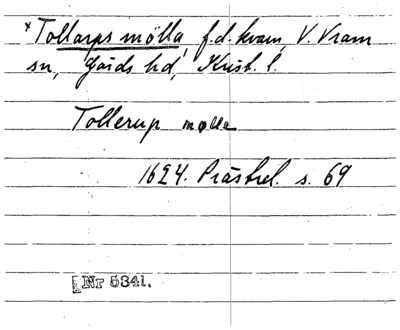 * Tollarps mölla, f.d. kvarn, V. Vram
sn, Gärds hd, Krist. l.
Tollerup mølle
1624. Prästrel. s. 69
Nr 5341.